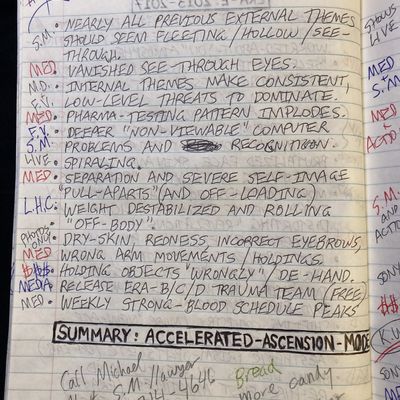 2013-2017
S.M. • NEARLY ALL PREVIOUS EXTERNAL THEMES
SHOULD SEEM FLEETING/HOLLOW/SEE-
THROUGH.
MED. VANISHED SEE-THROUGH EYES.
M.D. • INTERNAL THEMES MAKE CONSISTENT,
F.V. LOW-LEVEL THREATS TO DOMINATE.
MED • PHARMA-TESTING PATTERN IMPLODES.
F.V. • DEEPER "NON-VIEWABLE" COMPUTER
S.M. PROBLEMS AND RECOGNITION.
LIVE • SPIRALING.
MED. • SEPARATION AND SEVERE SELF-IMAGE
"PULL-APARTS" (AND OFF-LOADING)
L.H.C. • WEIGHT DESTABILIZED AND ROLLING
"OFF-BODY".
PHOTOS ONLY • DRY-SKIN, REDNESS, INCORRECT EYEBROWS,
MED WRONG ARM MOVEMENTS/HOLDINGS.
$$$ • HOLDING OBJECTS "WRONGLY"/DE-HAND.
MEDA • RELEASE ERA-B/C/D TRAUMA TEAM (FREE)
MED • • WEEKLY STRONG-BLOOD SCHEDULE PEAKS
SUMMARY: ACCELERATED-ASCENSION-MODE
Call Michael
S.M. / lawyer
914-4646
Bread
more candy
SHOWS
LIVE
MED
S.M.
MED
ACTIO
S.M.
AND
ACTIO
SONY
$$
K.W
SON